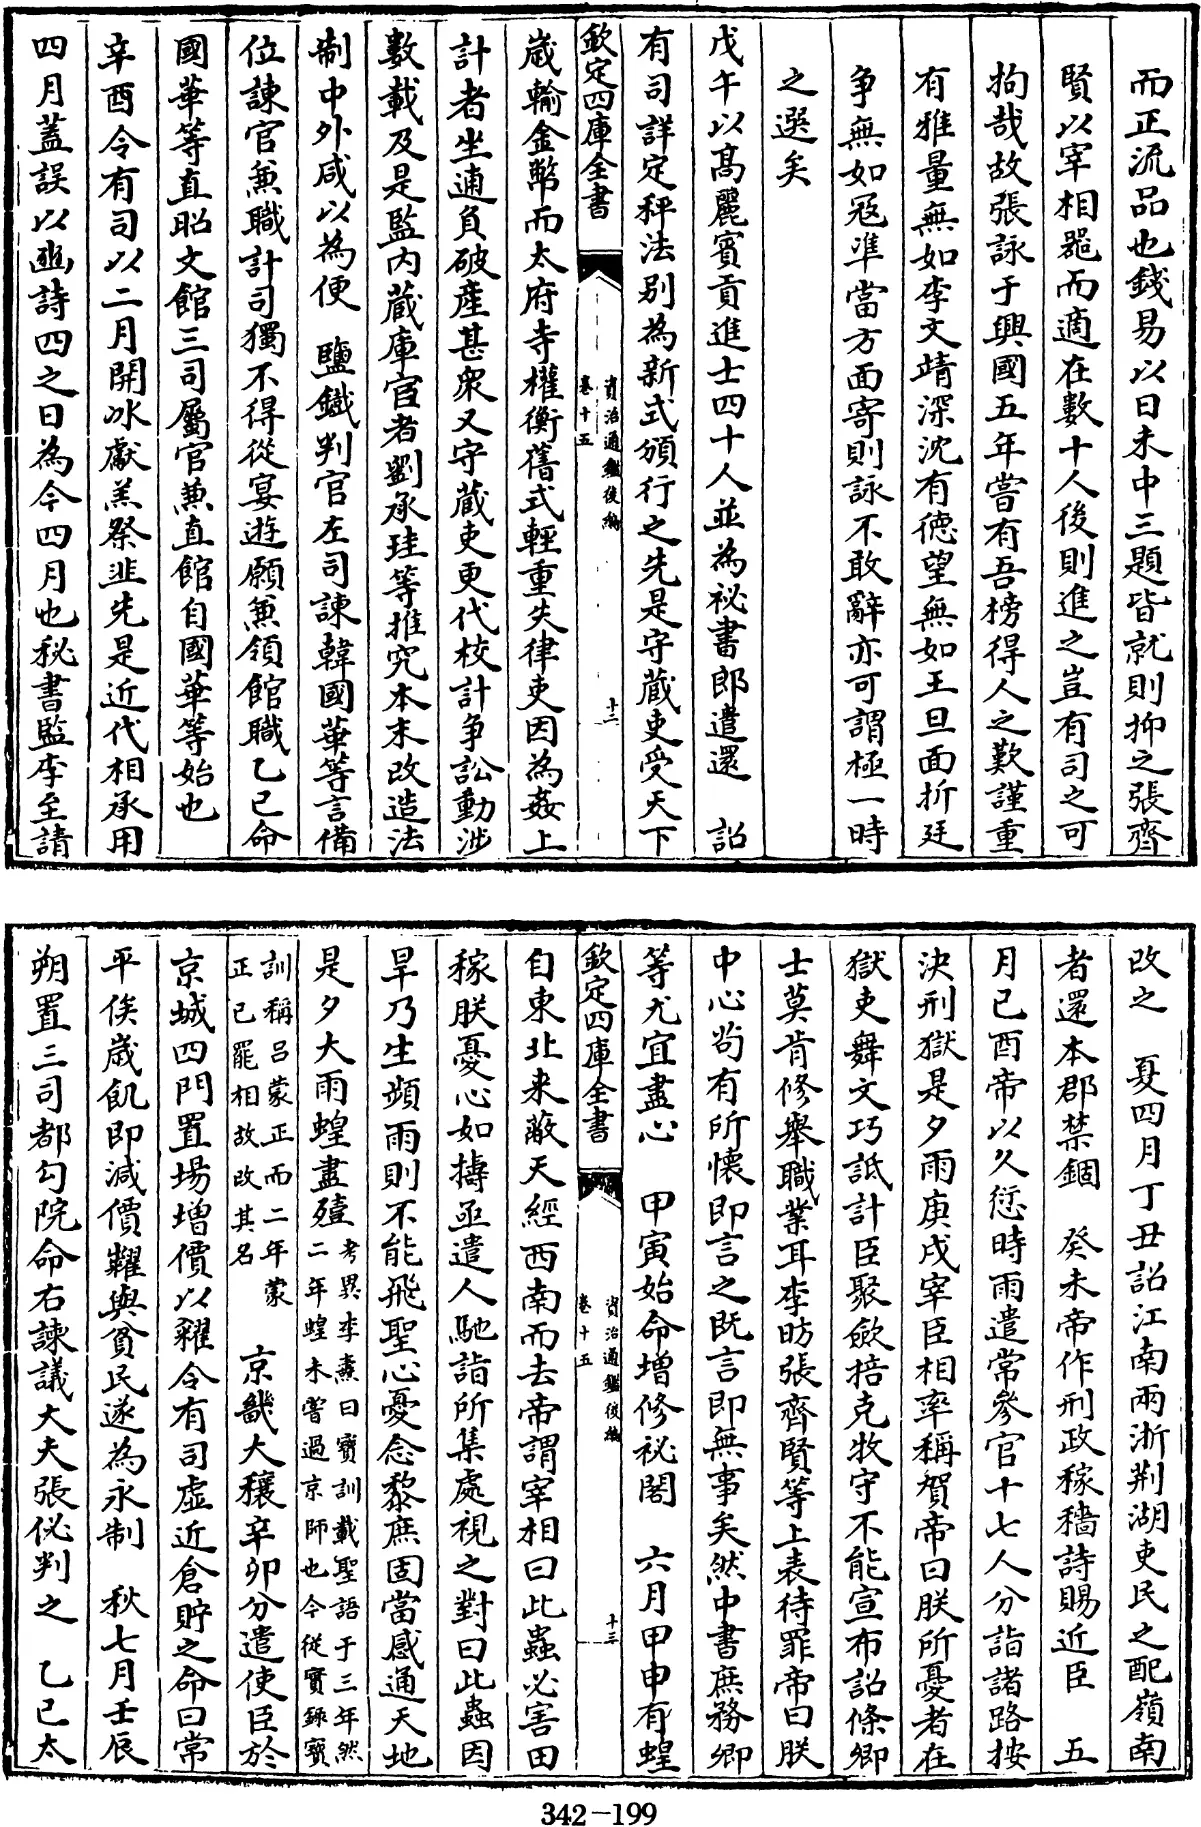 而正流品也錢易以日未中三題皆就則抑之張齊
賢以宰相器而適在數十人後則進之豈有司之可
拘哉故張詠于興國五年嘗有吾榜得人之歎謹重
有雅量無如李文靖深沈有德望無如王旦面折廷
爭無如冦準當方面寄則詠不敢辭亦可謂極一時
之選矣
戊午以髙麗賓貢進士四十人並為祕書郎遣還　詔
有司詳定秤法别為新式頒行之先是守藏吏受天下
欽定四庫全書
資治通鑑後編
卷十五
十二
歲輸金幣而太府寺權衡舊式輕重失律吏因為姦上
計者坐逋負破產甚衆又守藏吏更代校計爭訟動涉
數載及是監内藏庫宦者劉承珪等推究本末改造法
制中外咸以為便　鹽鐵判官左司諫韓國華等言備
位諫官兼職計司獨不得從宴遊願兼領館職乙巳命
國華等直昭文館三司屬官兼直館自國華等始也
辛酉令有司以二月開氷獻羔祭韭先是近代相承用
四月蓋誤以豳詩四之日為今四月也秘書監李至請
改之　夏四月丁丑詔江南兩浙荆湖吏民之配嶺南
者還本郡禁錮　癸未帝作刑政稼穡詩賜近臣　五
月己酉帝以久愆時雨遣常參官十七人分詣諸路按
決刑獄是夕雨庚戌宰臣相率稱賀帝曰朕所憂者在
獄吏舞文巧詆計臣聚斂掊克牧守不能宣布詔條卿
士莫肯修舉職業耳李昉張齊賢等上表待罪帝曰朕
中心尚有所懷即言之既言即無事矣然中書庶務卿
等尤宜盡心　甲寅始命增修祕閣　六月甲申有蝗
欽定四庫全書
資治通鑑後編
卷十五
十三
自東北来蔽天經西南而去帝謂宰相曰此蟲必害田
稼朕憂心如擣亟遣人馳詣所集處視之對曰此蟲因
旱乃生頻雨則不能飛聖心憂念黎庶固當感通天地
是夕大雨蝗盡殪考異李燾曰寶訓載聖語于三年然
二年蝗未嘗過京師也今從實録寶
訓稱吕蒙正而二年蒙
正已罷相故改其名
京畿大穰辛卯分遣使臣於
京城四門置場增價以糴令有司虛近倉貯之命曰常
平俟歲飢即減價糶與貧民遂為永制　秋七月壬辰
朔置三司都勾院命右諫議大夫張佖判之　乙巳太
342-199